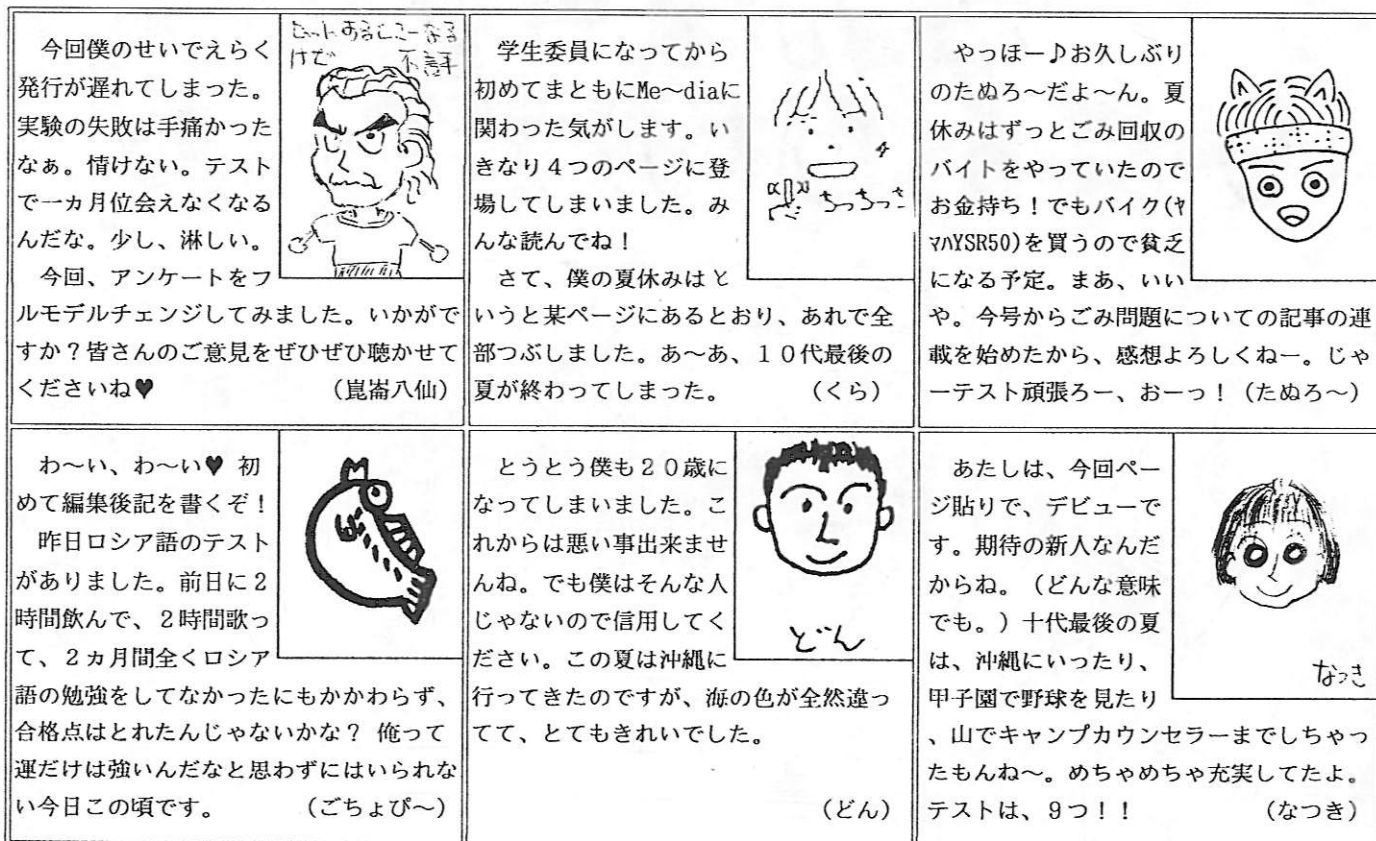 今回僕のせいでえらく
発行が遅れてしまった。
実験の失敗は手痛かった
なぁ。情けない。テスト
で一ヵ月位会えなくなる
んだな。少し、淋しい。
今回、アンケートをフ
ルモデルチェンジしてみました。いかがで
すか？皆さんのご意見をぜひぜひ聴かせて
くださいね♥ (崑崙八仙)
不評
学生委員になってから
初めてまともにMe～diaに
関わった気がします。い
きなり４つのページに登
場してしまいました。み
んな読んでね！
さて、僕の夏休みはと
いうと某ページにあるとおり、あれで全
部つぶしました。あ～あ、１０代最後の
夏が終わってしまった。 (くら)
ちっちっき
やっほー♪お久しぶり
のたぬろ～だよ～ん。夏
休みはずっとごみ回収の
バイトをやっていたので
お金持ち！でもバイク(ﾔ
ﾏﾊYSR50)を買うので貧乏
になる予定。まあ、いい
や。今号からごみ問題についての記事の連
載を始めたから、感想よろしくねー。じゃ
ーテスト頑張ろー、おーっ！(たぬろ～)
わ～い、わ～い♥ 初
めて編集後記を書くぞ！
昨日ロシア語のテスト
がありました。前日に２
時間飲んで、２時間歌っ
て、２ヵ月間全くロシア
語の勉強をしてなかったにもかかわらず、
合格点はとれたんじゃないかな？ 俺って
運だけは強いんだなと思わずにはいられな
い今日この頃です。 (ごちょぴ～)
とうとう僕も２０歳に
なってしまいました。こ
れからは悪い事出来ませ
んね。でも僕はそんな人
じゃないので信用してく
ださい。この夏は沖縄に
行ってきたのですが、海の色が全然違っ
てて、とてもきれいでした。
(どん)
どん
あたしは、今回ペー
ジ貼りで、デビューで
す。期待の新人なんだ
からね。（どんな意味
でも。）十代最後の夏
は、沖縄にいったり、
甲子園で野球を見たり
、山でキャンプカウンセラーまでしちゃっ
たもんね～。めちゃめちゃ充実してたよ。
テストは、９つ！！ (なつき)
なつき